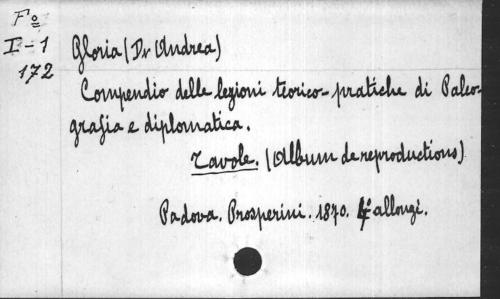 Fº
I-1
172
Gloria (Dr Andrea)
Compendio delle lezioni teorico-pratiche di Paleo-
grafia e diplomatica.
Tavole. (Album de reproductions)
Padova. Prosperini. 1870. 4º allongé.